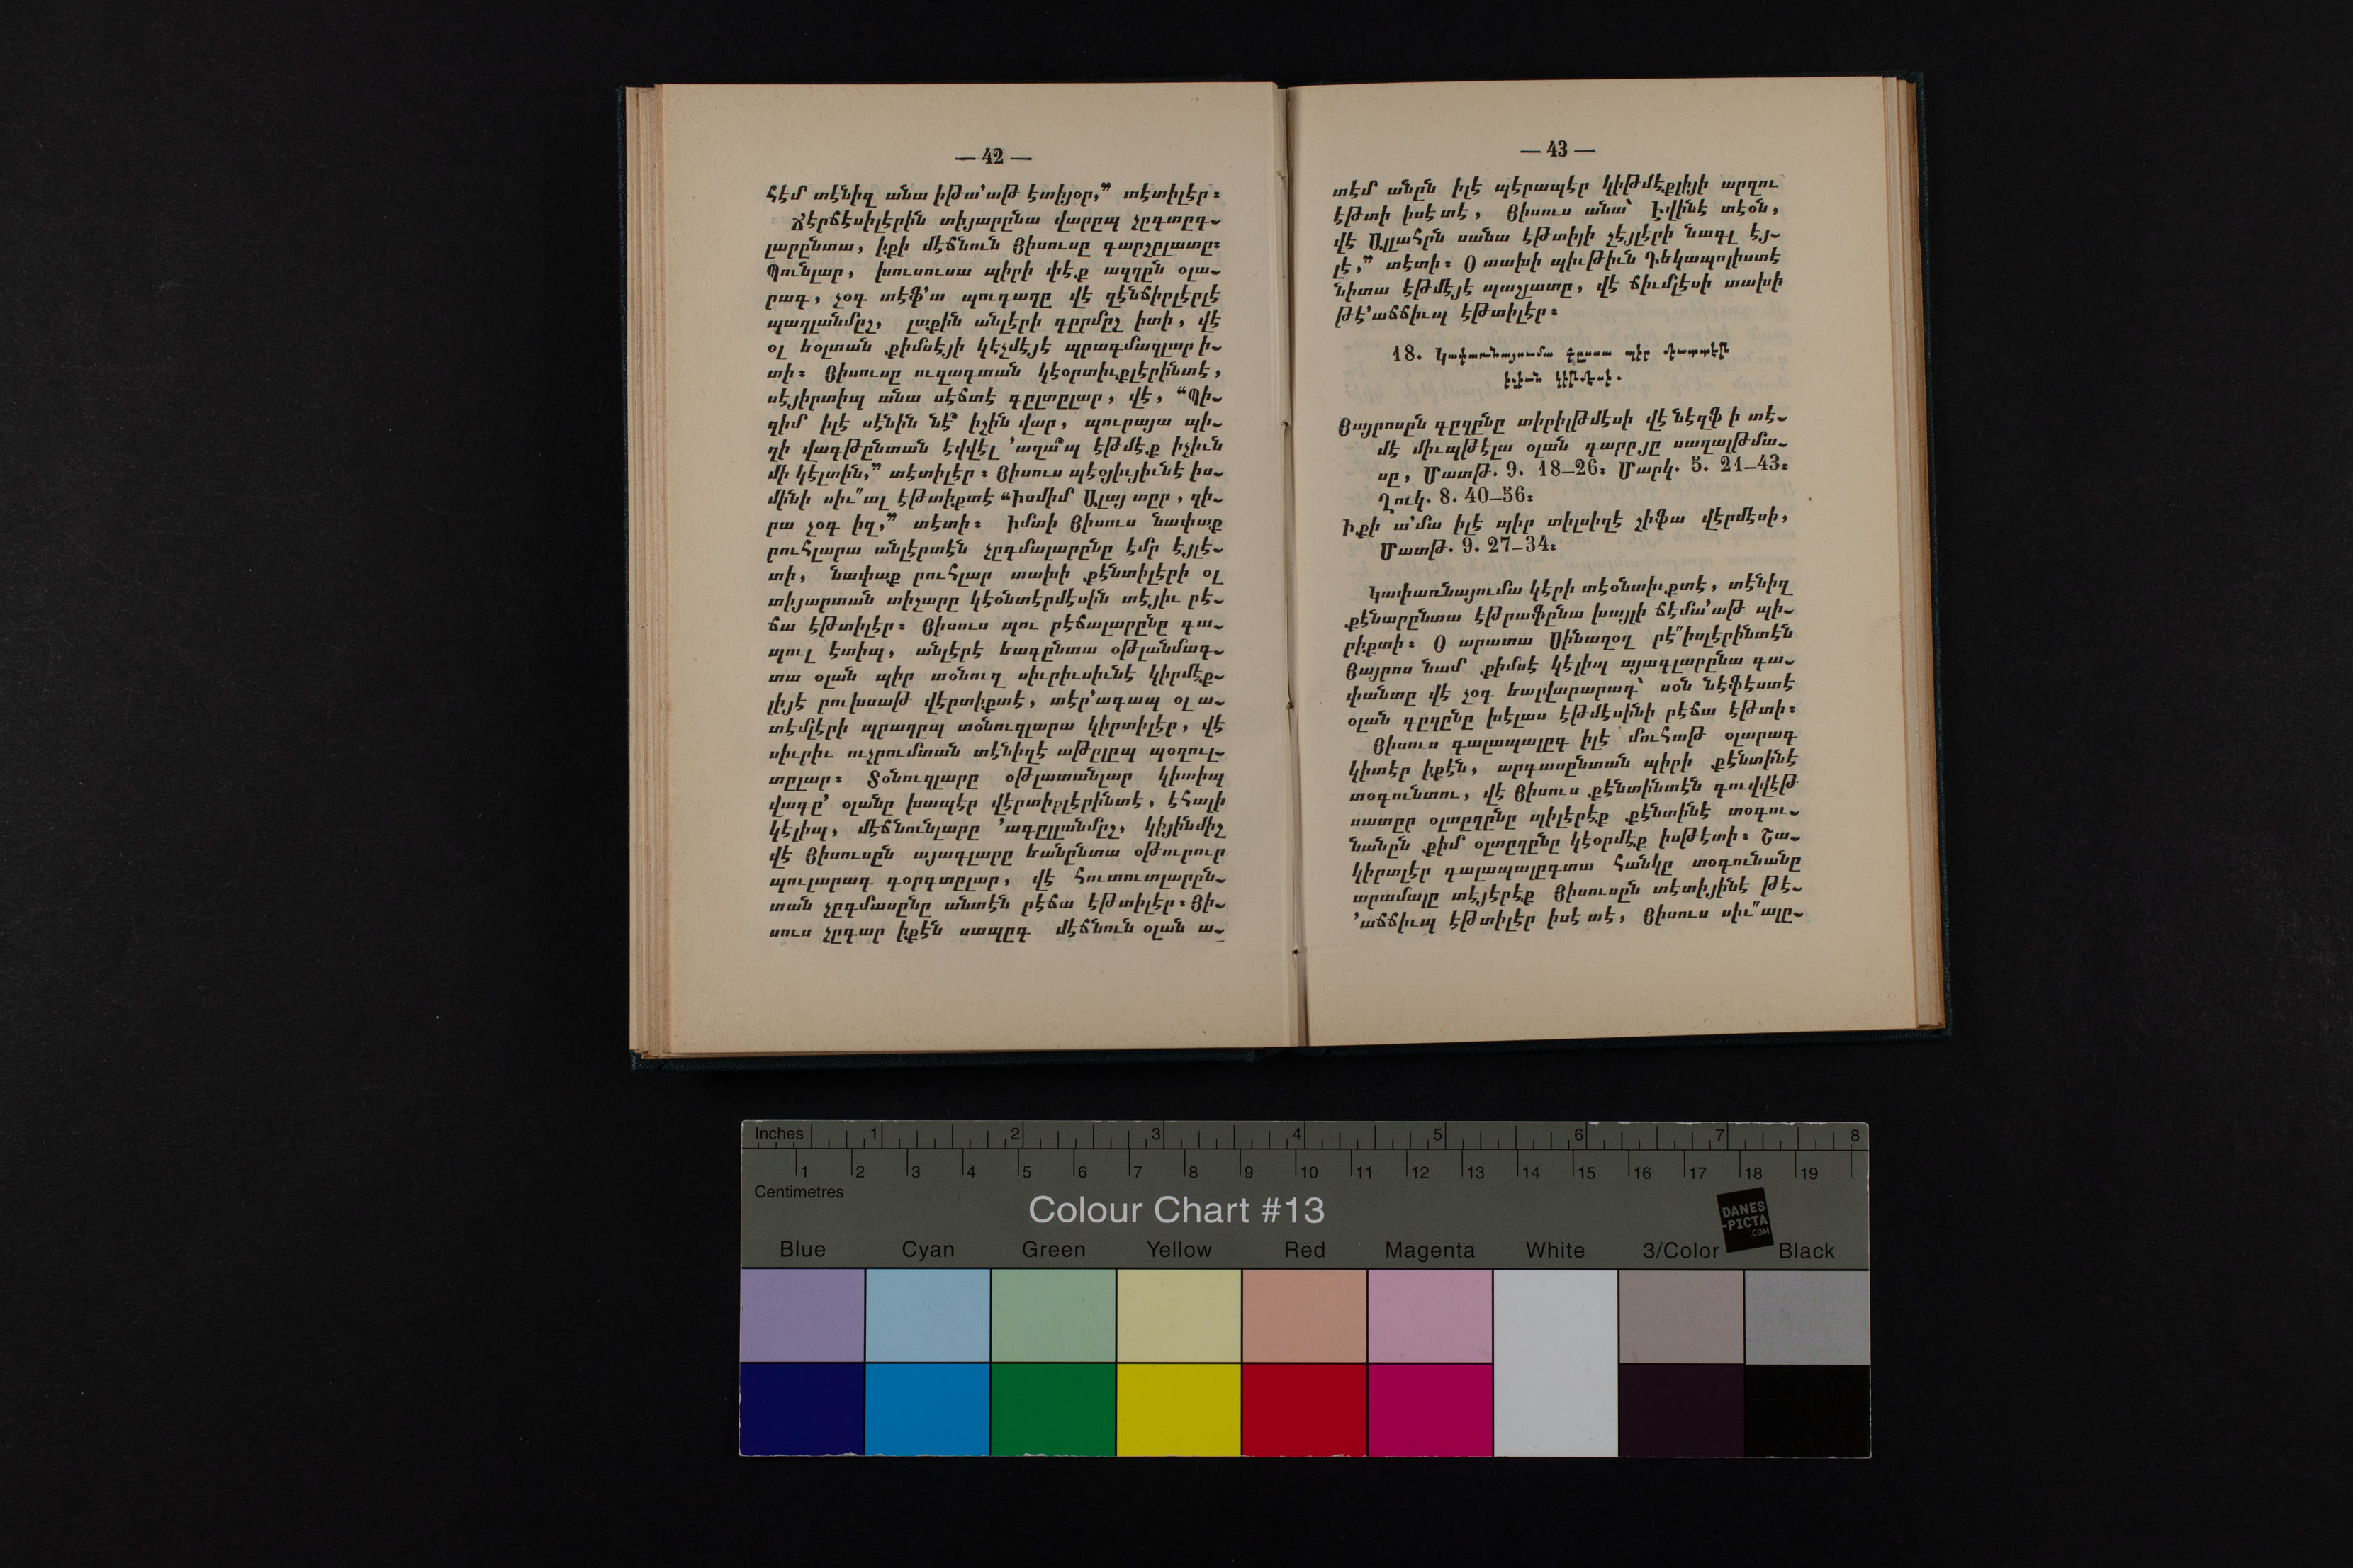 — 42 —
հէմ տէնիզ անա իթա՛աթ էտիյօր,” տէտիլէր։
Ճէրճէսիլէրին տիյարընա վարըպ չըգտըգ-
լարընտա, իքի մէճնուն Յիսուսը գարշըլատը։
Պունլար, խուսուսա պիրի փէք ազղըն օլա-
րագ, չօգ տէֆ՛ա պուգաղը վէ զէնճիրլէրլէ
պաղլանմըշ, լաքին անլէրի գըրմըշ իտի, վէ
օլ եօլտան քիմսէյի կէչմէյէ պրագմազլար ի-
տի։ Յիսուսը ուզագտան կէօրտիւքլէրինտէ,
սէյիրտիպ անա սէճտէ գըլտըլար, վէ, “Պի-
զիմ իլէ սէնին նէ՞ իշին վար, պուրայա պի-
զի վագթընտան էվվէլ ՛ազա՞պ էթմէք իչիւն
մի կէլտին,” տէտիլէր։ Յիսուս պէօյիւյիւնէ իս-
մինի սիւ՞ալ էթտիքտէ “Իսմիմ Ալայ տըր, զի-
րա չօգ իզ,” տէտի։ Իմտի Յիսուս նափաք
րուհլարա անլէրտէն չըգմալարընը էմր էյլէ-
տի, նափաք րուհլար տախի քէնտիլէրի օլ
տիյարտան տիշարը կէօնտէրմէսին տէյիւ րէ-
ճա էթտիլէր։ Յիսուս պու րէճալարընը գա-
պուլ էտիպ, անլէրէ եագընտա օթլանմագ-
տա օլան պիր տօնուզ սիւրիւսիւնէ կիրմէք-
լիյէ րուխսաթ վէրտիքտէ, տէր՛ագապ օլ ա-
տէմլէրի պրաղըպ տօնուզլարա կիրտիլէր, վէ
սիւրիւ ուչրումտան տէնիզէ աթըլըպ պօղուլ-
տըլար։ Տօնուզլարը օթլատանլար կիտիպ
վագը՛ օլանը խապէր վէրտիքլէրինտէ, էհալի
կէլիպ, մէճնունլարը ՛ագըլլանմըշ, կիյինմիշ
վէ Յիսուսըն այագլարը եանընտա օթուրուր
պուլարագ գօրգտըլար, վէ հուտուտլարըն-
տան չըգմասընը անտէն րէճա էթտիլէր։ Յի-
սուս չըգար իքէն սապըգ մէճնուն օլան ա-
— 43 —
տէմ անըն իլէ պէրապէր կիթմէքլիյի արզու
էթտի իսէ տէ, Յիսուս անա՝ Էվինէ տէօն,
վէ Ալլահըն սանա էթտիյի շէյլէրի նագլ էյ-
լէ,” տէտի։ Օ տախի պիւթիւն Դեկապոլիստէ
նիտա էթմէյէ պաշլատը, վէ ճիւմլէսի տախի
թէ՛աճճիւպ էթտիլէր։
18. Կափառնայումա գըսսա պիր մտտէթ
իչիւն կիթմէսի.
Յայրոսըն գըզընը տիրիլթմէսի վէ նէզֆ ի տէ-
մէ միւպթէլա օլան գարըյը սաղալթմա-
սը, Մատթ. 9. 18-26։ Մարկ. 5. 21-43։
Ղուկ. 8. 40-56։
Իքի ա՛մա իլէ պիր տիլսիզէ շիֆա վէրմէսի,
Մատթ. 9. 27-34։
Կափառնայումա կէրի տէօնտիւքտէ, տէնիզ
քէնարընտա էթրաֆընա խայլի ճէմա՛աթ պի-
րիքտի։ Օ արատա Սինաղօղ րէ՞իսլէրինտէն
Յայրոս նամ քիմսէ կէլիպ այագլարընա գա-
փանտը վէ չօգ եալվարարագ՝ սօն նէֆէստէ
օլան գըզընը խէլաս էթմէսինի րէճա էթտի։
Յիսուս գալապալըգ իլէ մուհաթ օլարագ
կիտէր իքէն, արգասընտան պիրի քէնտինէ
տօգունտու, վէ Յիսուս քէնտինտէն գուվվէթ
սատըր օլտըղընը պիլէրէք քէնտինէ տօգու-
նանըն քիմ օլտըղընը կէօրմէք իսթէտի։ Շա-
կիրտլէր գալապալըգտա հանկը տօգունանը
արամալը տէյէրէք Յիսուսըն տէտիյինէ թէ-
՛աճճիւպ էթտիլէր իսէ տէ, Յիսուս սիւ՞ալը-
Inches 1 2 3 4 5 6 7 8
1 2 3 4 5 6 7 8 9 10 11 12 13 14 15 16 17 18 19
Centimetres
Colour Chart #13
DANES
-PICTA
.COM
Blue Cyan Green Yellow Red Magenta White 3/Color Black